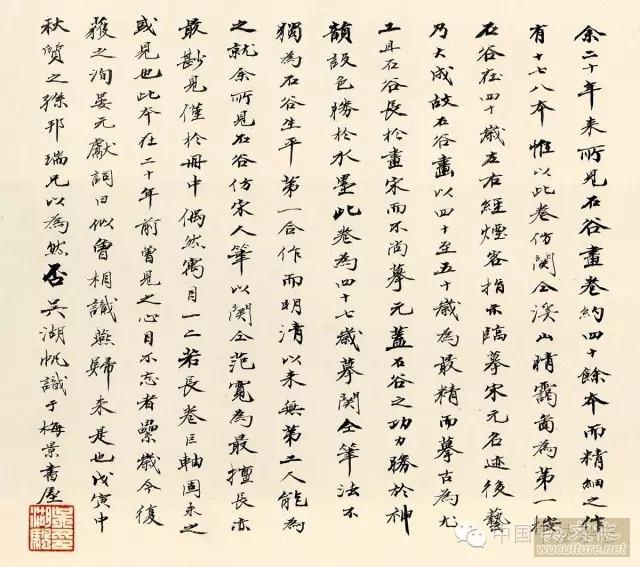 余二十年来所見石谷畫卷約四十餘本而精細之作
有十七八本惟以此卷仿関仝溪山晴靄啚為第一按
石谷在四十歲左右經煙客指示臨摹宋元名迹後藝
乃大成故石谷畫以四十至五十歲為最精而摹古為尤
工且石谷長於畫宋而不尚摹元蓋石谷之功力勝於神
韻設色勝於水墨此卷為四十七歲摹関仝筆法不
獨為石谷生平第一合作而明清以来無第二人能為
之就余所見石谷仿宋人筆以関仝范寬為最擅長亦
最尠見僅於冊中偶然寓目一二若長卷巨軸固未之
或見也此本在二十年前曾見之心目不忘者纍歲今復
獲之洵晏元獻詞曰似曾相識燕歸来是也戊寅中
秋質之孫邦瑞兄以為然否吳湖帆識于梅景書屋
中国
wuculture.net